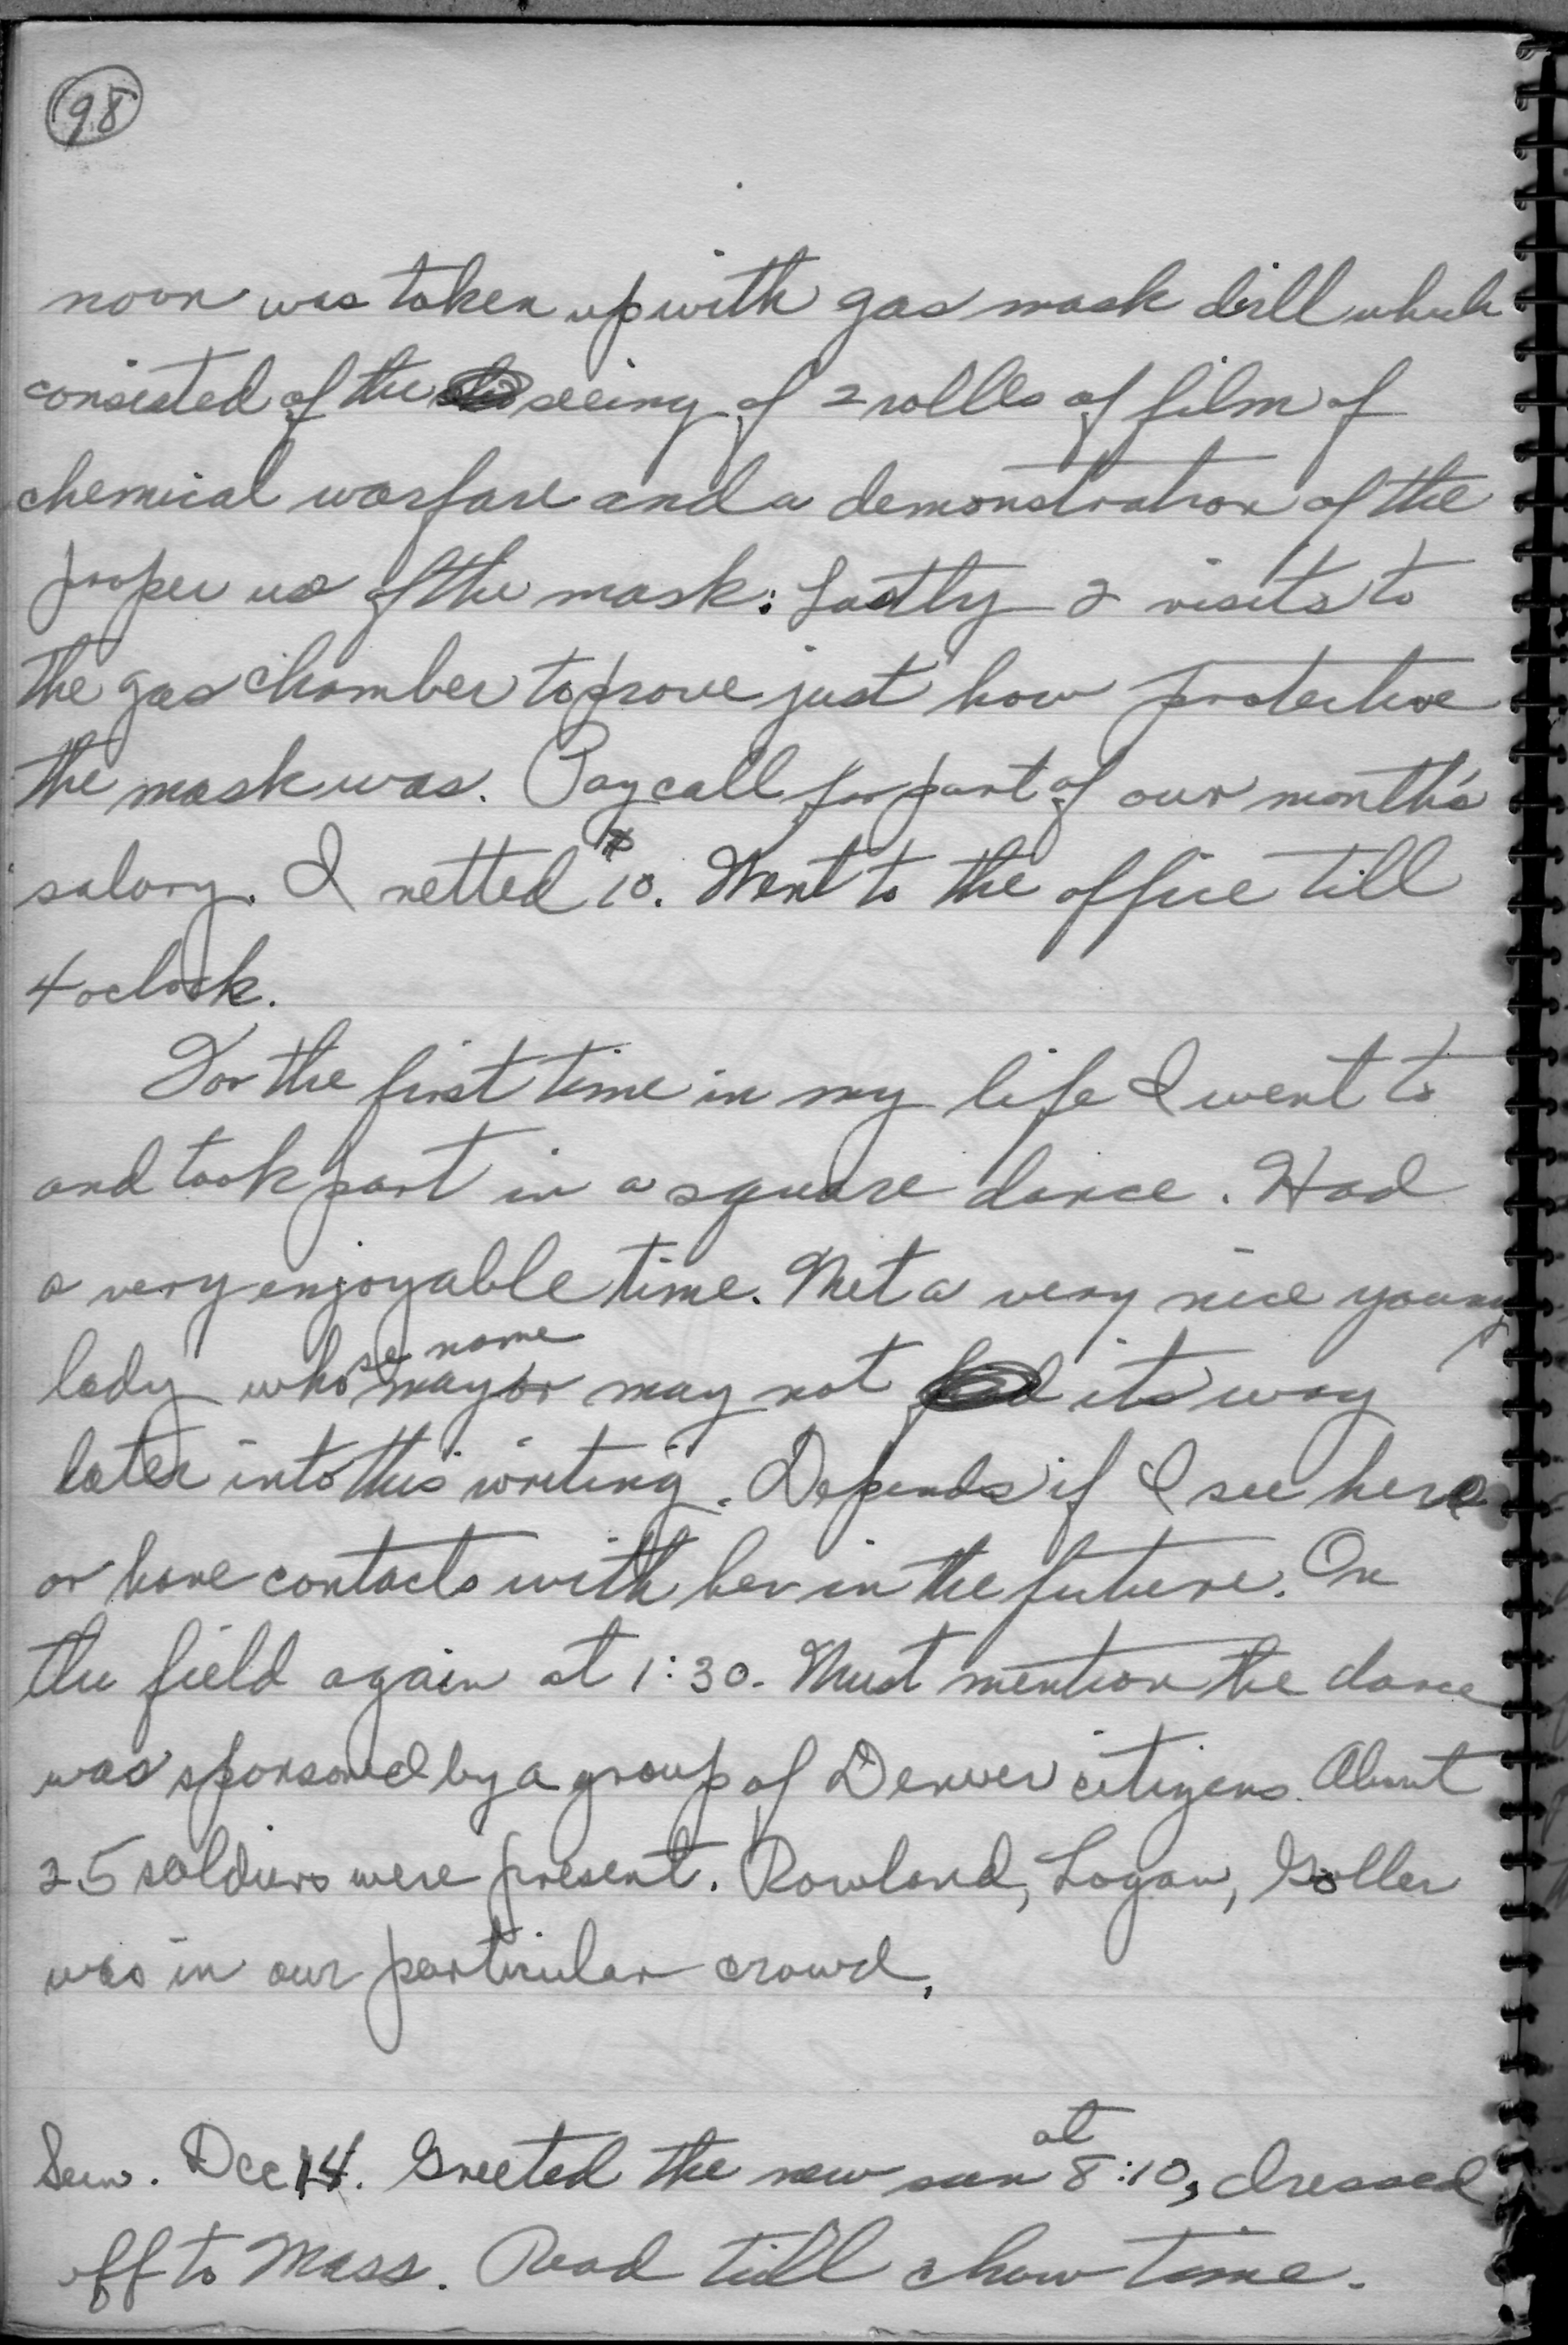 98
noon was taken up with gas mask drill which
consisted of the seeing of 2 rolls of film of
chemical warfare and a demonstration of the
proper use of the mask: Lastly 2 visits to
the gas chamber to prove just how protective
the mask was. Pay call for part of our month's
salary. I netted $10. Went to the office till
4 oclock.
For the first time in my life I went to
and took part in a square dance. Had
a very enjoyable time. Met a very nice young
lady whose name may or may not find its way
later into this writing. Depends if I see her
or have contacts with her in the future. On
the field again at 1:30. Must mention the dance
was sponsored by a group of Denver citizens. About
25 soldiers were present. Rowland, Logan, Goller
was in our particular crowd.
Sun. Dec 14. Greeted the new sun at 8:10, dressed
off to Mass. Read till chow time.